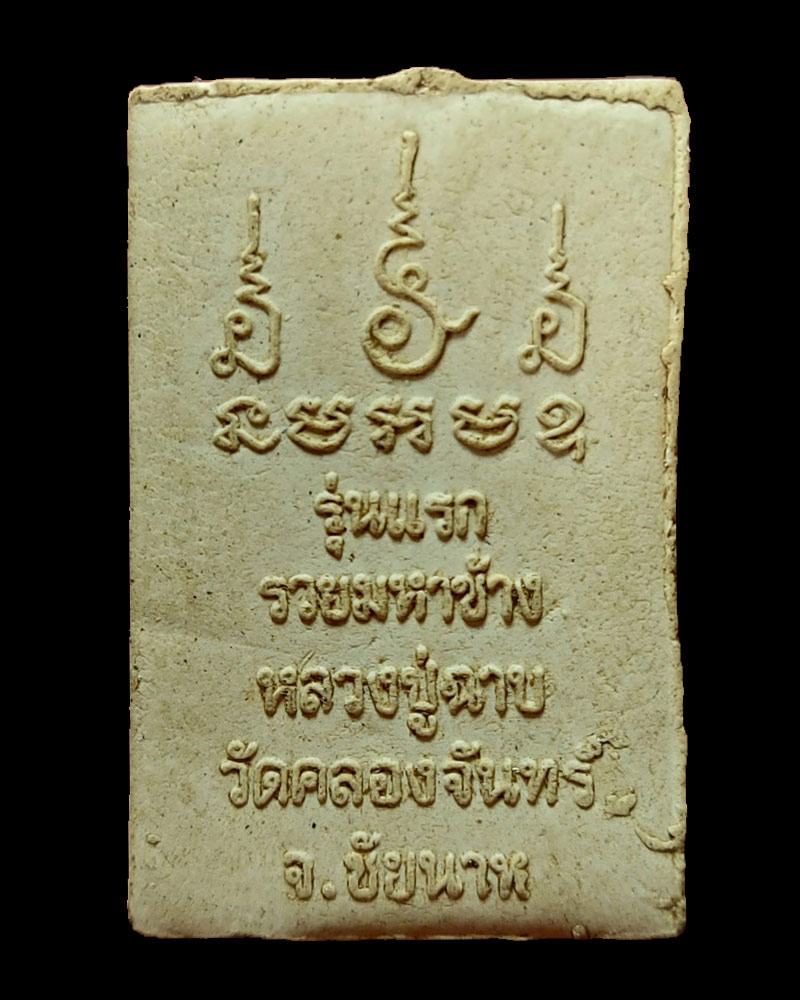 รุ่นแรก
รวยมหาช้าง
หลวงปู่ฉาบ
วัดคลองจันทร์
จ.ชัยนาท